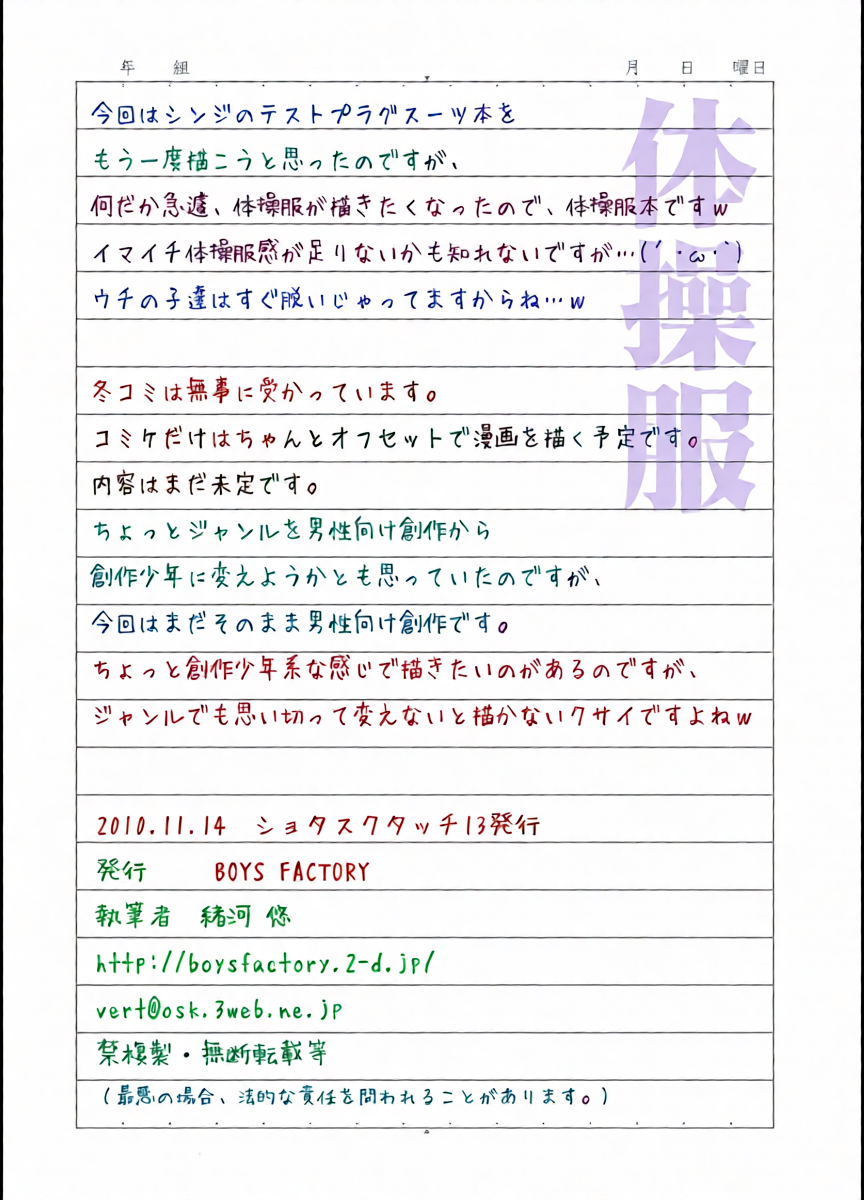 年 組 月 日 曜日
今回はシンジのテストプラグスーツ本を
もう一度描こうと思ったのですが、
何だか急遽、体操服が描きたくなったので、体操服本ですw
イマイチ体操服感が足りないかも知れないですが…(´・ω・`)
ウチの子達はすぐ脱いじゃってますからね…w
冬コミは無事に受かっています。
コミケだけはちゃんとオフセットで漫画を描く予定です。
内容はまだ未定です。
ちょっとジャンルを男性向け創作から
創作少年に変えようかとも思っていたのですが、
今回はまだそのまま男性向け創作です。
ちょっと創作少年系な感じで描きたいのがあるのですが、
ジャンルでも思い切って変えないと描かないクサイですよねw
2010.11.14 ショタスクタッチ13発行
発行 BOYS FACTORY
執筆者 緒河 悠
http://boysfactory.2-d.jp/
vert@osk.3web.ne.jp
禁複製・無断転載等
(最悪の場合、法的な責任を問われることがあります。)
体操服